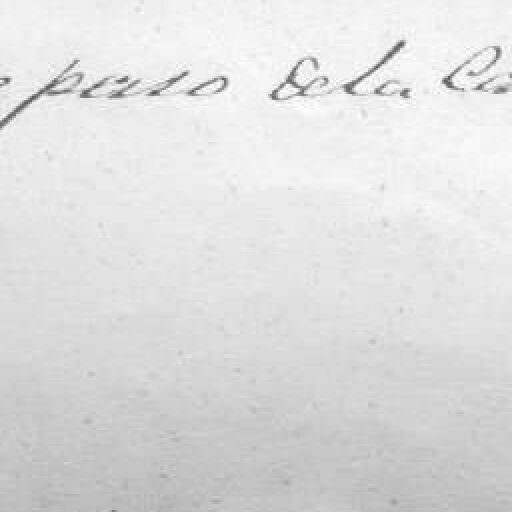 paso dela